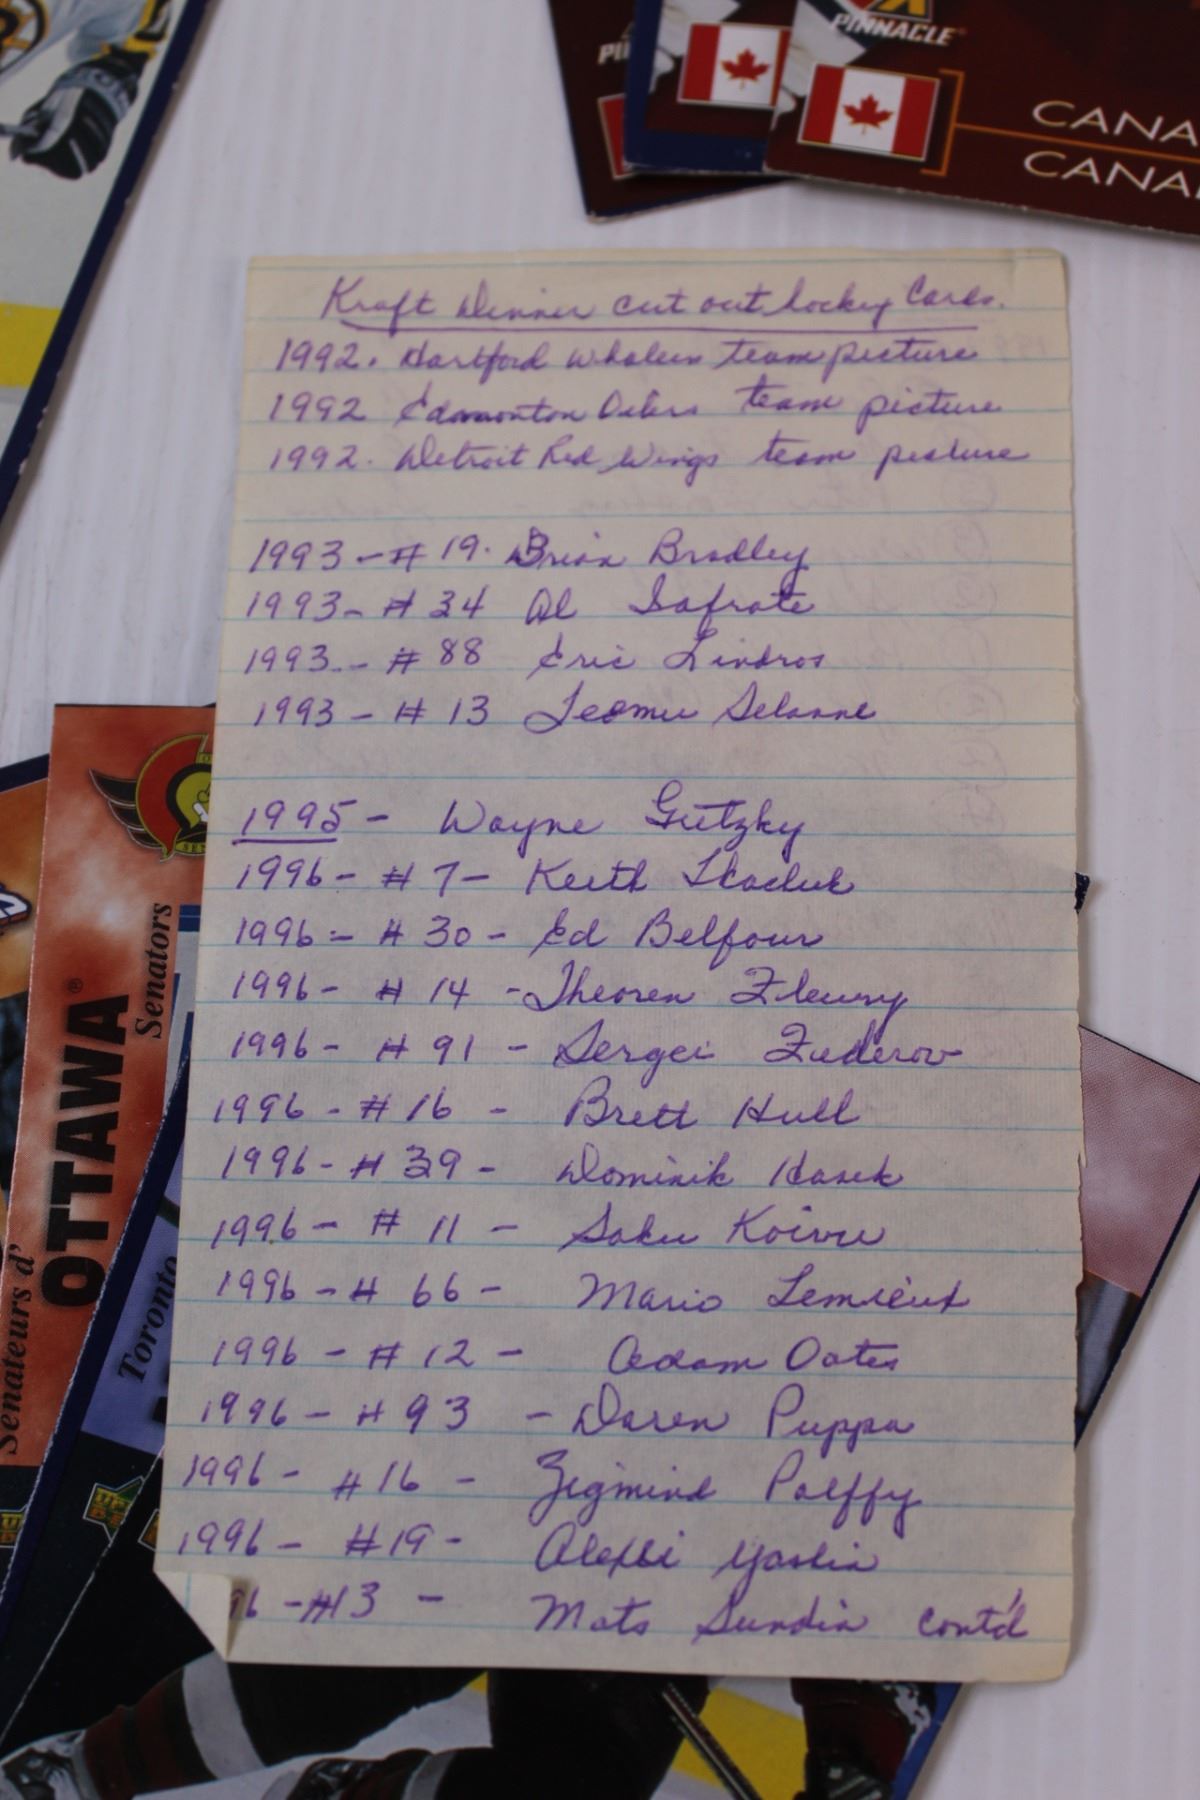 PINNACLE
CANA
CANA
Kraft Dinner cut out hockey Cards.
1992. Hartford Whalers team picture
1992 Edmonton Oilers team picture
1992. Detroit Red Wings team picture
1993 - # 19. Brian Bradley
1993 - # 34 Al Iafrate
1993 - # 88 Eric Lindros
1993 - # 13 Teemu Selanne
1995 - Wayne Gretzky
1996 - # 7 - Keith Tkachuk
1996 - # 30 - Ed Belfour
1996 - # 14 - Theoren Fleury
1996 - # 91 - Sergei Federov
1996 - # 16 - Brett Hull
1996 - # 39 - Dominik Hasek
1996 - # 11 - Saku Koivu
1996 - # 66 - Mario Lemieux
1996 - # 12 - Adam Oates
1996 - # 93 - Daren Puppa
1996 - # 16 - Zigmind Palffy
1996 - # 19 - Alexei Yashin
96 - #13 - Mats Sundin cont'd
OTTAWA
Senators
Senateurs d'
Toronto